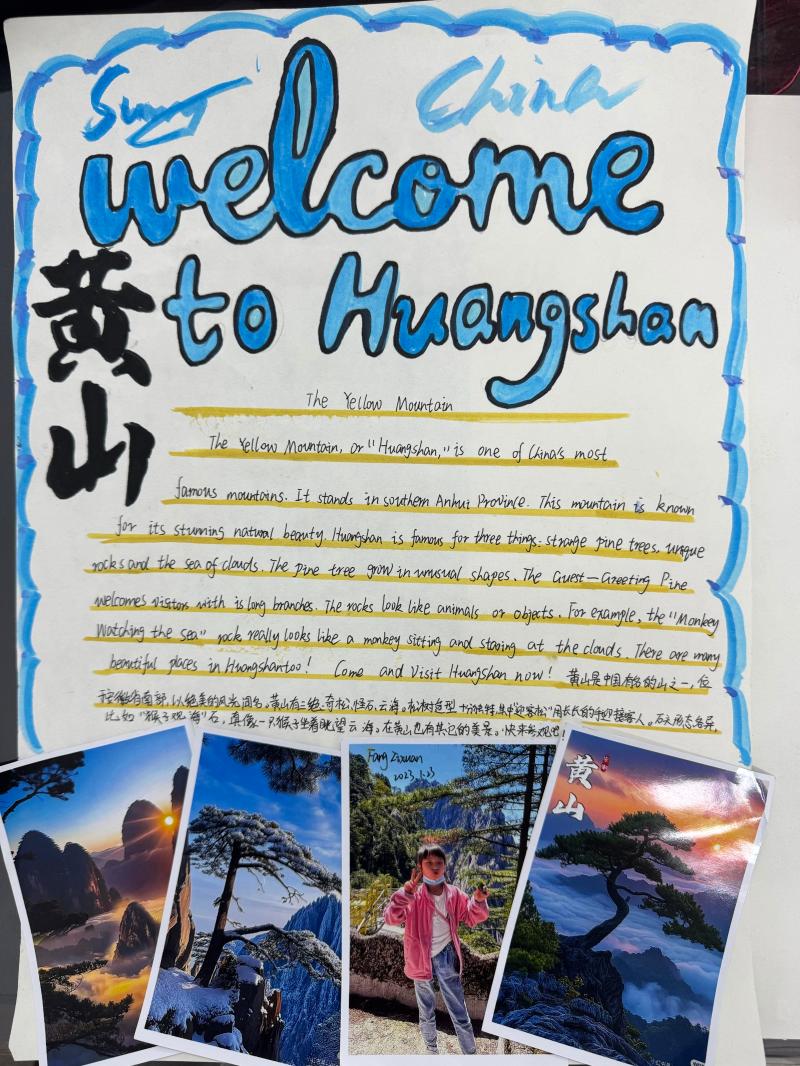 China
welcome
黄山
to Huangshan
The Yellow Mountain
The Yellow Mountain, or "Huangshan," is one of China's most
famous mountains. It stands in southern Anhui Province. This mountain is known
for its stunning natural beauty. Huangshan is famous for three things: strange pine trees, unique
rocks and the sea of clouds. The pine tree grow in unusual shapes. The Guest-Greeting Pine
welcomes visitors with is long branches. The rocks look like animals or objects. For example, the "Monkey
Watching the sea" rock really looks like a monkey sitting and staring at the clouds. There are many
beautiful places in Huangshan too! Come and Visit Huangshan now! 黄山是中国有名的山之一，位
于安徽省南部，以绝美的风光闻名。黄山有三绝：奇松，怪石，云海。松树造型十分独特，其中"迎客松"用长长的手迎接客人。石头形态各异，
比如"猴子观海"石，真像一只猴子坐着眺望云海。在黄山也有其它的美景。快来参观吧！
Fang Zixuan
2023.1.23
黄山